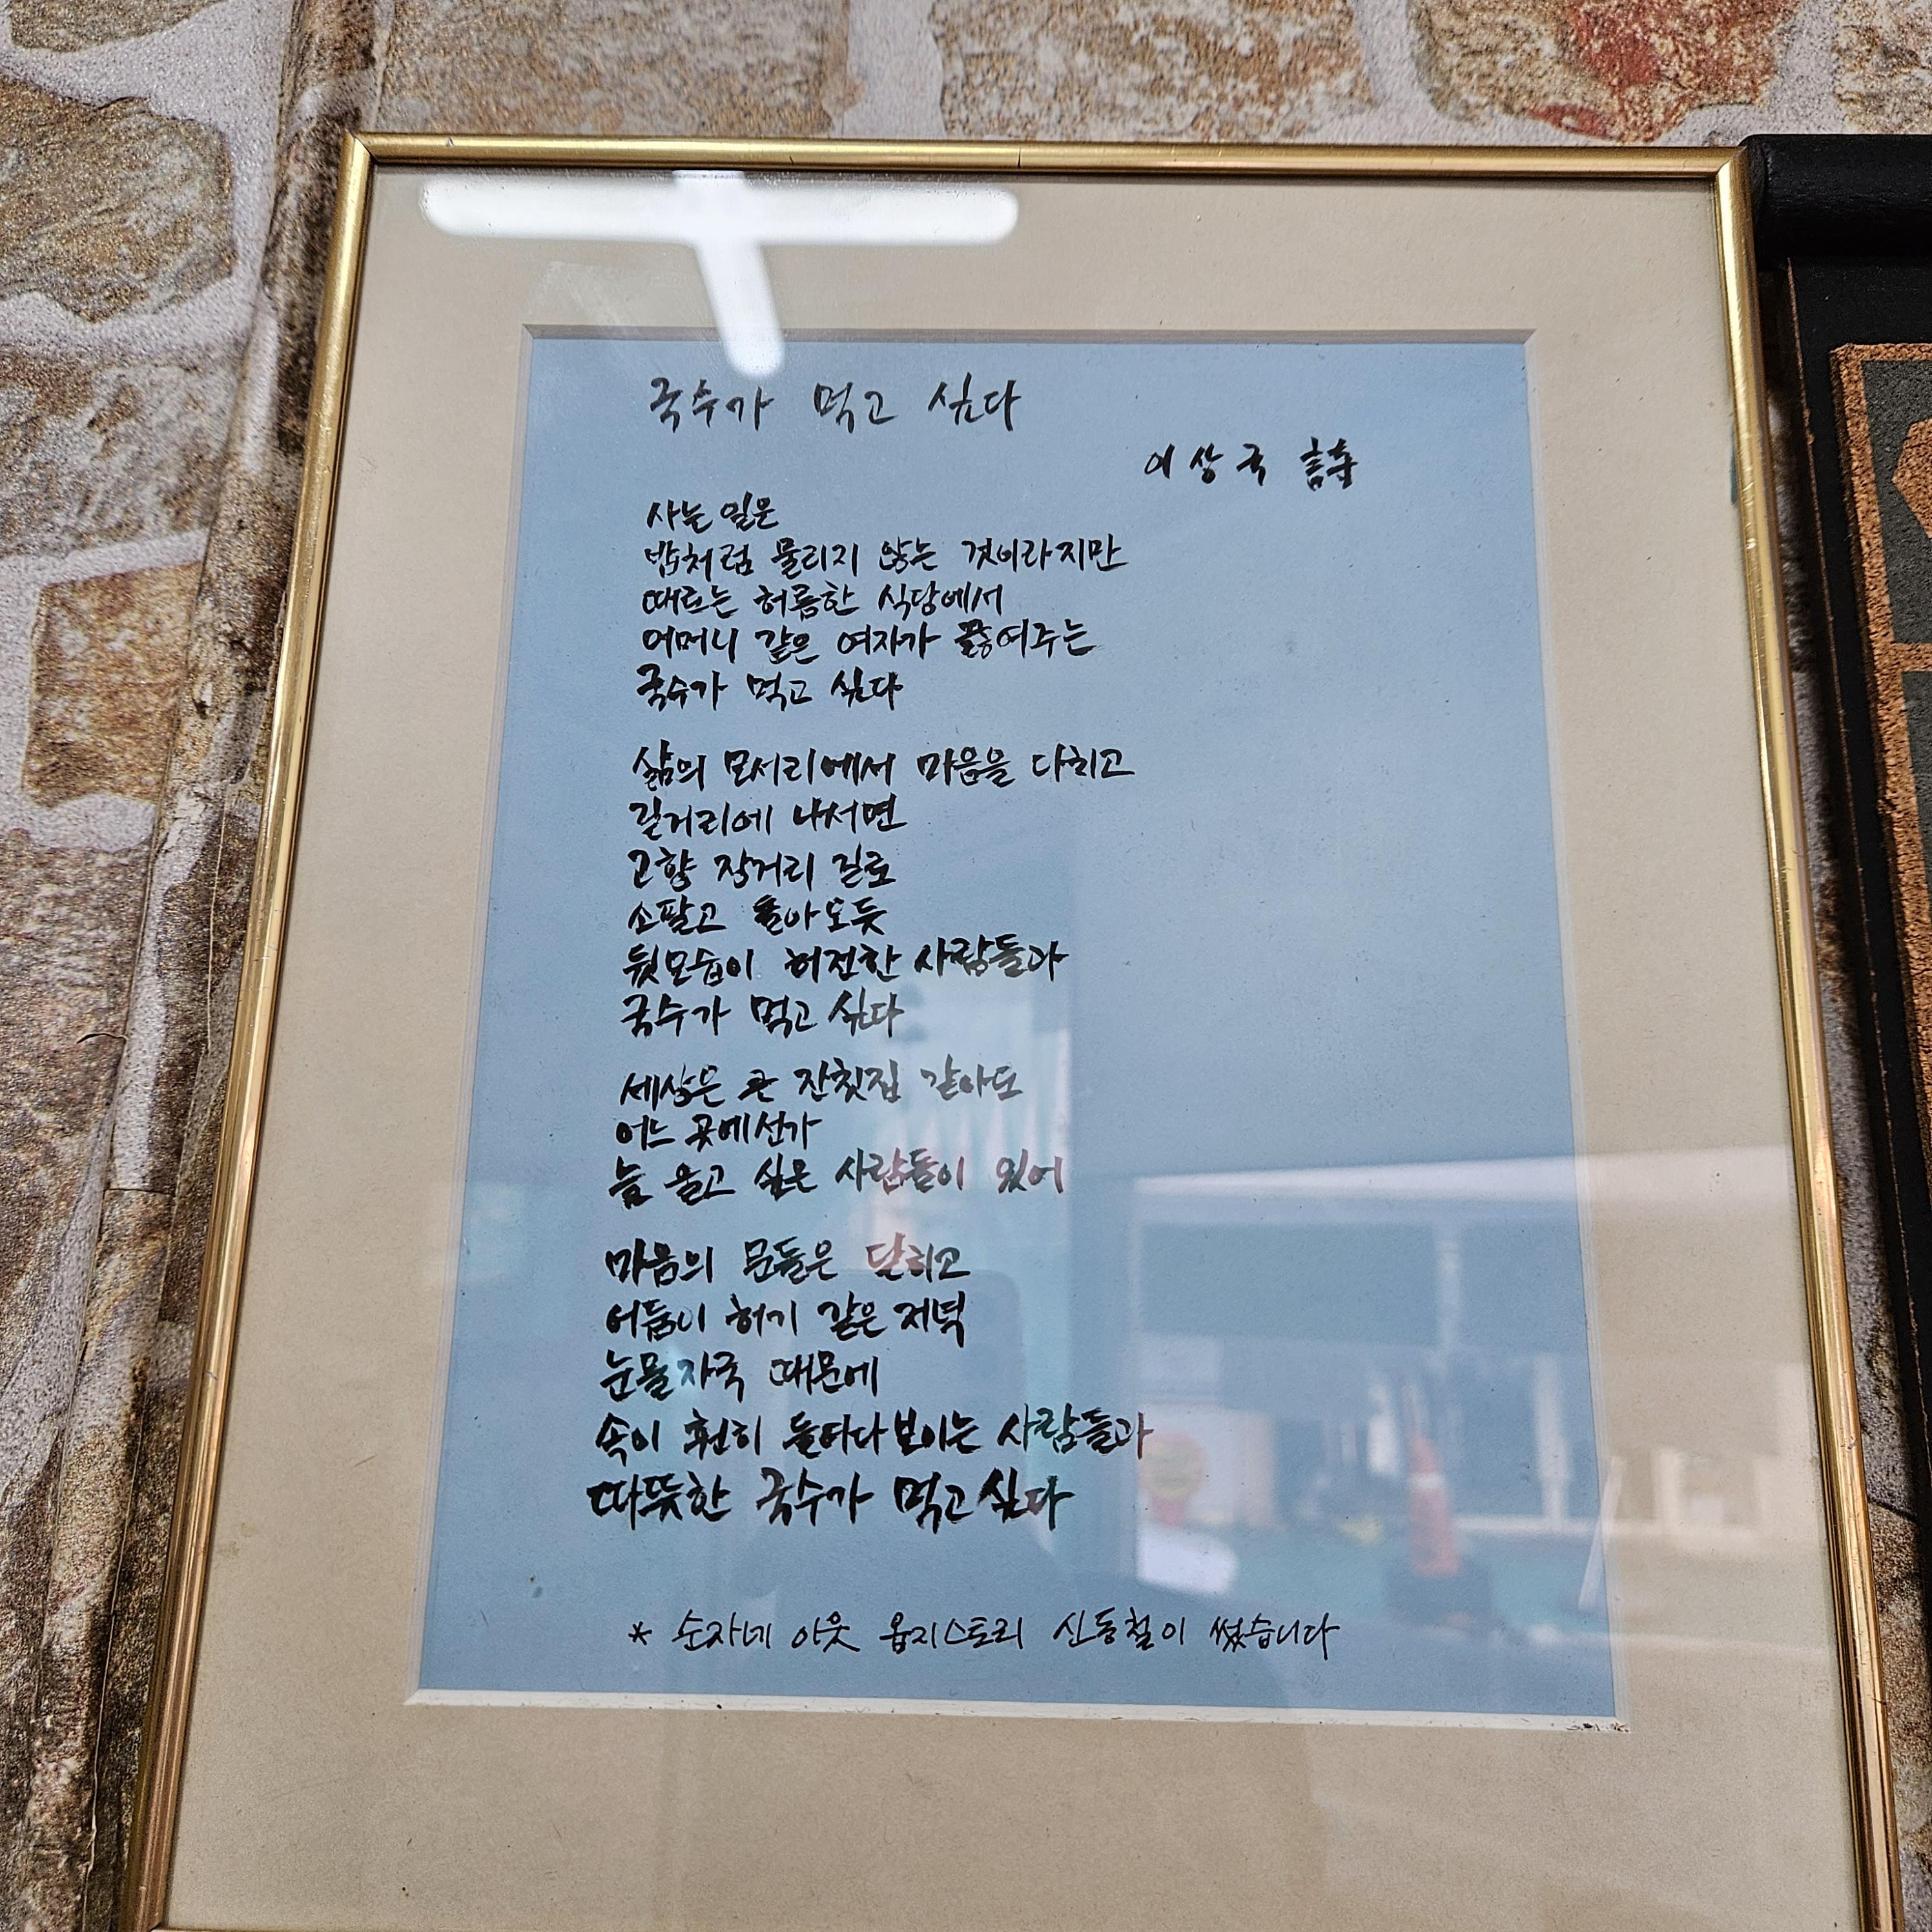 국수가 먹고 싶다
이상국 詩
사는 일은
밥처럼 물리지 않는 것이라지만
때로는 허름한 식당에서
어머니 같은 여자가 끓여주는
국수가 먹고 싶다
삶의 모서리에서 마음을 다치고
길거리에 나서면
고향 장거리 길로
소팔고 돌아오듯
뒷모습이 허전한 사람들과
국수가 먹고 싶다
세상은 큰 잔칫집 같아도
어느 곳에선가
늘 울고 싶은 사람들이 있어
마음의 문들은 닫히고
어둠이 허기 같은 저녁
눈물자국 때문에
속이 훤히 들여다보이는 사람들과
따뜻한 국수가 먹고싶다
* 순자네 이웃 옵지스토리 신동철이 썼습니다